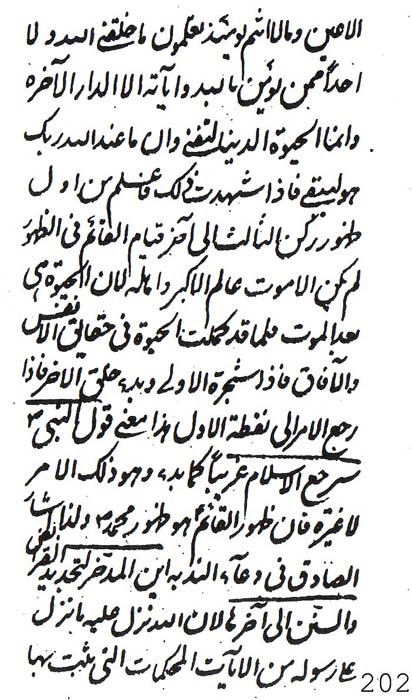 الاعین و مالا انتم یومئذ تعلمون ما خلقنی الله و لا
احداً ممن یؤمن بالله و آیاته الا الدار الآخرة
و انما الحیوة الدنیا لتفنی و ان ما عند الله ربک
هو لیبقی فاذا شهدت ذلک فاعلم من اول
ظهور رکن الثالث الی آخر قیام القائم فی الظهور
لم یکن الا موت عالم الاکبر و اهله لان الحیوة هی
بعد الموت فلما قد کملت الحیوة فی حقایق الانفس
و الآفاق فاذا شجرة الاولی و بدء خلق الاخر فاذا
رجع الامر الی نقطة الاول هذا معنی قول النبی ص
سیرجع الاسلام غریباً کما بدء و هو ذلک الامر
لا غیره فان ظهور القائم هو ظهور محمد ص و لذا اشار
الصادق فی دعاء الندبه این المدخر لتجدید الفرائض
و السنن الی آخرها لان الله نزل علیه ما نزل
علی رسوله من الآیات المحکمات التی یثبت بها
202